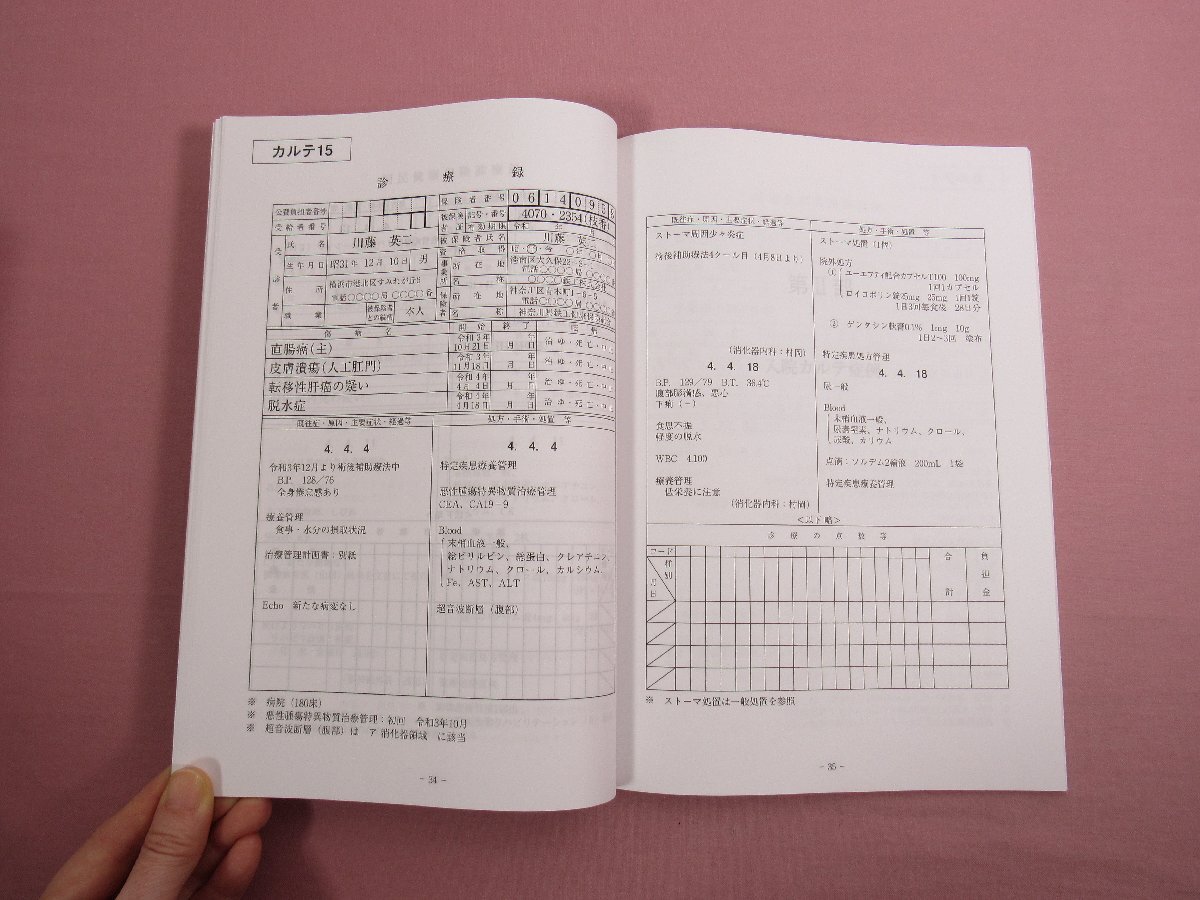 カルテ15
診療録
公費負担者番号
保険者番号 0 6 1 4 0 9
受給者番号
記号・番号 4070・2354(枝番)
氏名 川藤 英二
被保険者氏名 川藤 英二
生年月日 昭31年12月10日 男
資格取得
住所
所在地
電話○○○○局○○○○番
職業
本人
所在地
電話○○○局
名称
傷病名 開始 終了
直腸癌(主) 令和3年10月21日 年 月 日 治ゆ・死亡・
皮膚潰瘍(人工肛門) 令和3年11月18日 年 月 日 治ゆ・死亡・
転移性肝癌の疑い 令和4年4月4日 年 月 日 治ゆ・死亡・
脱水症 令和4年4月18日 年 月 日 治ゆ・死亡・
既往症・原因・主要症状・経過等
処方・手術・処置 等
4. 4. 4
令和3年12月より術後補助療法中
B.P. 128/76
全身倦怠感あり
療養管理
食事・水分の摂取状況
治療管理計画書:別紙
Echo 新たな病変なし
4. 4. 4
特定疾患療養管理
悪性腫瘍特異物質治療管理
CEA、CA19-9
Blood
末梢血液一般、
総ビリルビン、総蛋白、クレアチニン、
ナトリウム、クロール、カルシウム、
Fe、AST、ALT
超音波断層(腹部)
※ 病院(180床)
※ 悪性腫瘍特異物質治療管理:初回 令和3年10月
※ 超音波断層(腹部)は ア 消化器領域 に該当
- 34 -
既往症・原因・主要症状・経過等
処方・手術・処置 等
ストーマ周囲少々炎症
術後補助療法4クール目(4月8日より)
(消化器内科:村岡)
4. 4. 18
B.P. 129/79 B.T. 36.4℃
腹部膨満感、悪心
下痢(-)
食思不振
軽度の脱水
WBC 4,100
療養管理
低栄養に注意
(消化器内科:村岡)
ストーマ処置(1個)
院外処方
① ユーエフティ配合カプセルT100 100mg
1回1カプセル
ロイコボリン錠25mg 25mg 1回1錠
1日3回毎食後 28日分
② ゲンタシン軟膏0.1% 1mg 10g
1日2~3回 塗布
特定疾患処方管理
4. 4. 18
尿一般
Blood
末梢血液一般、
尿素窒素、ナトリウム、クロール、
尿酸、カリウム
点滴:ソルデム2輸液 200mL 1袋
特定疾患療養管理
<以下略>
診療の点数等
コード
種別
月日
合計
負担金
※ ストーマ処置は一般処置を参照
- 35 -